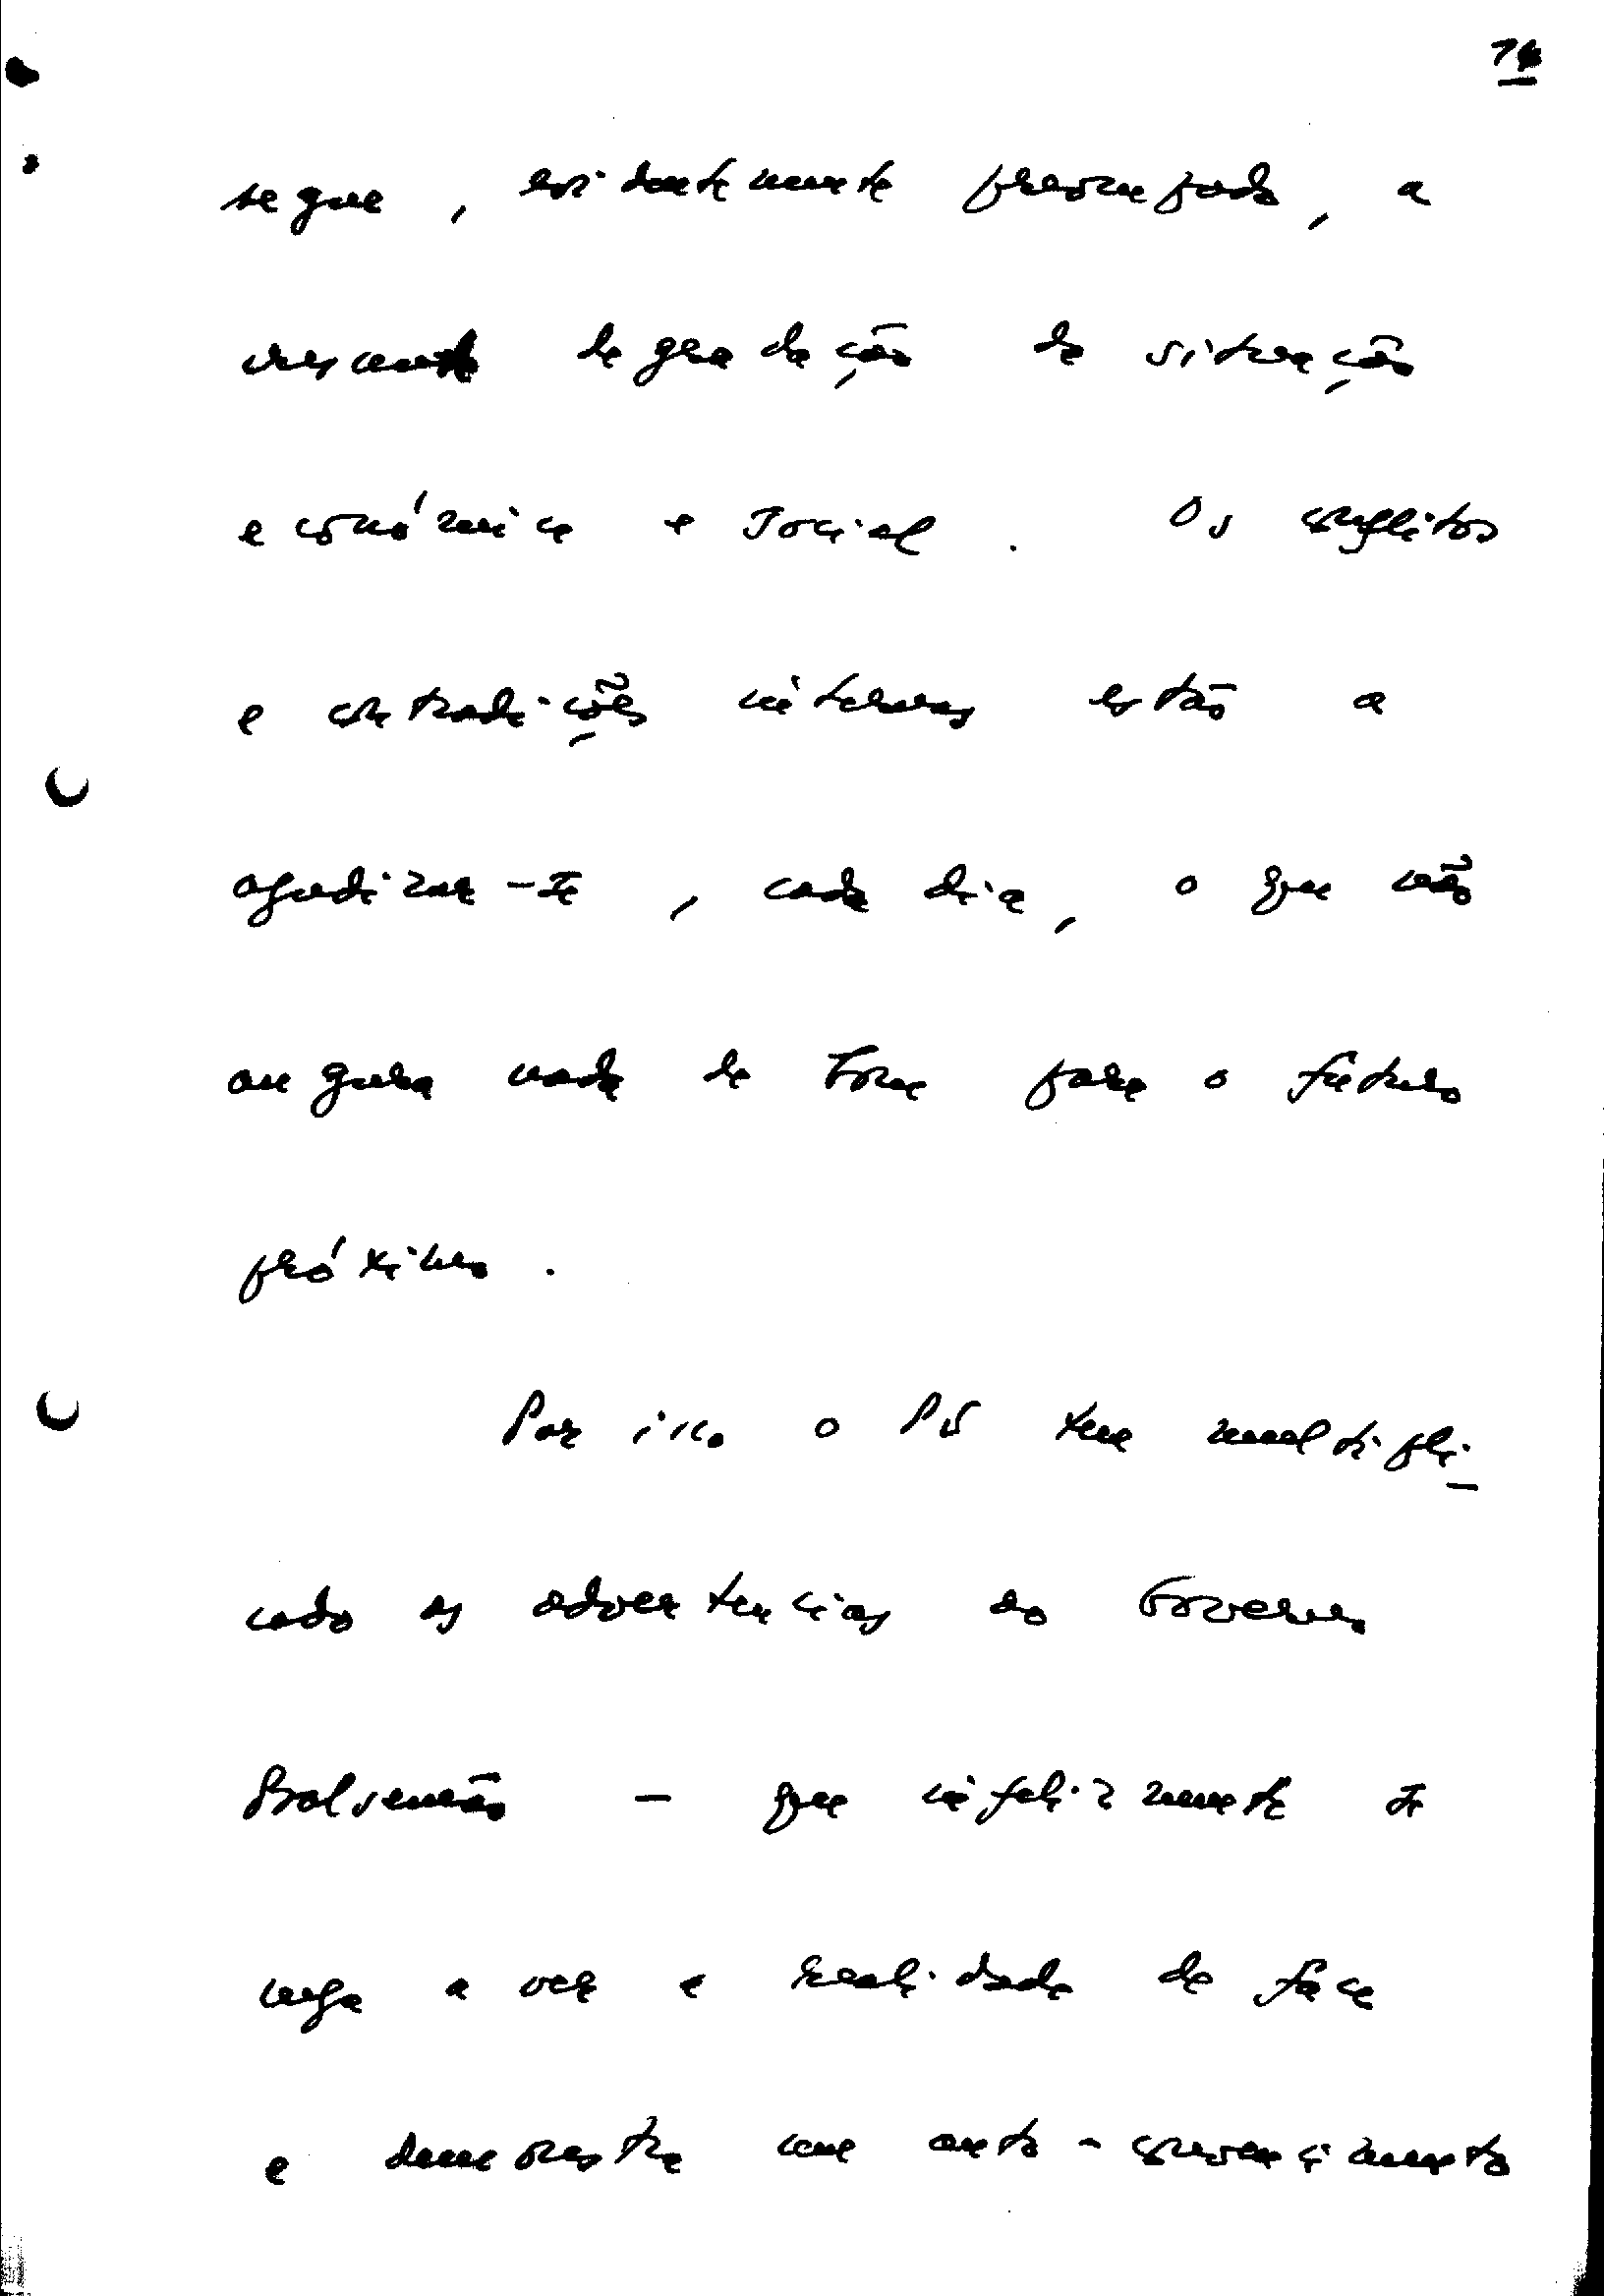 74
segue, evidentemente preocupado, a
crescente degradação da situação
económica e social. Os conflitos
e contradições internas estão a
agudizar-se, cada dia, o que não
augura nada de bom para o futuro
próximo.
Por isso o PS tem multipli-
cado as advertencias ao Governo
Balsemão - que infelizmente se
nega a ver a realidade de face
e demonstra um auto-convencimento